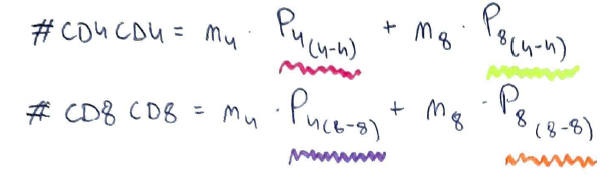 # CD4 CD4 = m4 · P4(4-4) + m8 · P8(4-4)
# CD8 CD8 = m4 · P4(8-8) + m8 · P8(8-8)